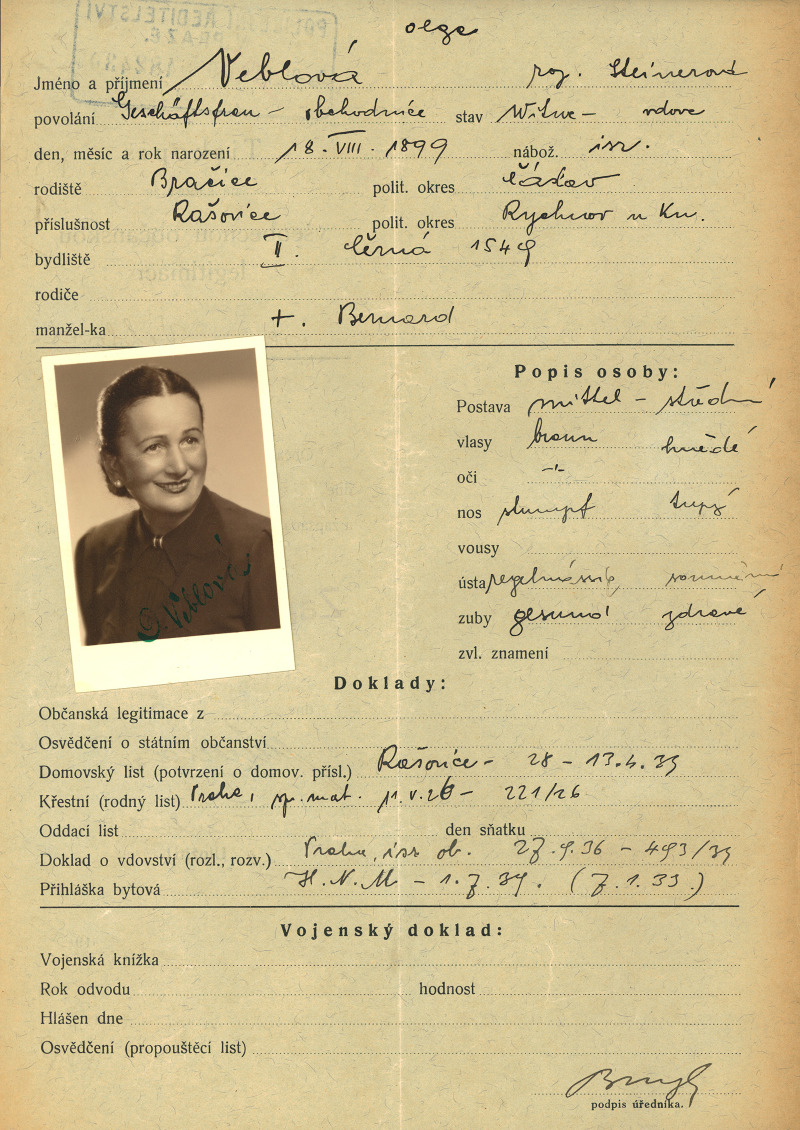 POLICEJNÍ ŘEDITELSTVÍ
Olga
Jméno a příjmení Veblová roz. Steinerová
povolání Geschäftsfrau - obchodnice stav Witwe - vdova
den, měsíc a rok narození 18. VIII. 1899 nábož. isr.
rodiště Bračice polit. okres Čáslav
příslušnost Rašovice polit. okres Rychnov n Kn.
bydliště II. Černá 1549
rodiče
manžel-ka +. Bernard
Popis osoby:
Postava mittel - střední
vlasy braun hnědé
oči -"-
nos stumpf tupý
vousy
ústa regelmässig, souměrná
zuby gesund zdravé
zvl. znamení
O. Veblová
Doklady:
Občanská legitimace z
Osvědčení o státním občanství
Domovský list (potvrzení o domov. přísl.) Rašovice - 28 - 13.4.39
Křestní (rodný list) Praha, sp. mat. 11.V.26 - 221/26
Oddací list den sňatku
Doklad o vdovství (rozl., rozv.) Praha, isr. ob. 27.9.36 - 493/39
Přihláška bytová H.N.M - 1.7.39. (7.1.33.)
Vojenský doklad:
Vojenská knížka
Rok odvodu hodnost
Hlášen dne
Osvědčení (propouštěcí list)
podpis úředníka.